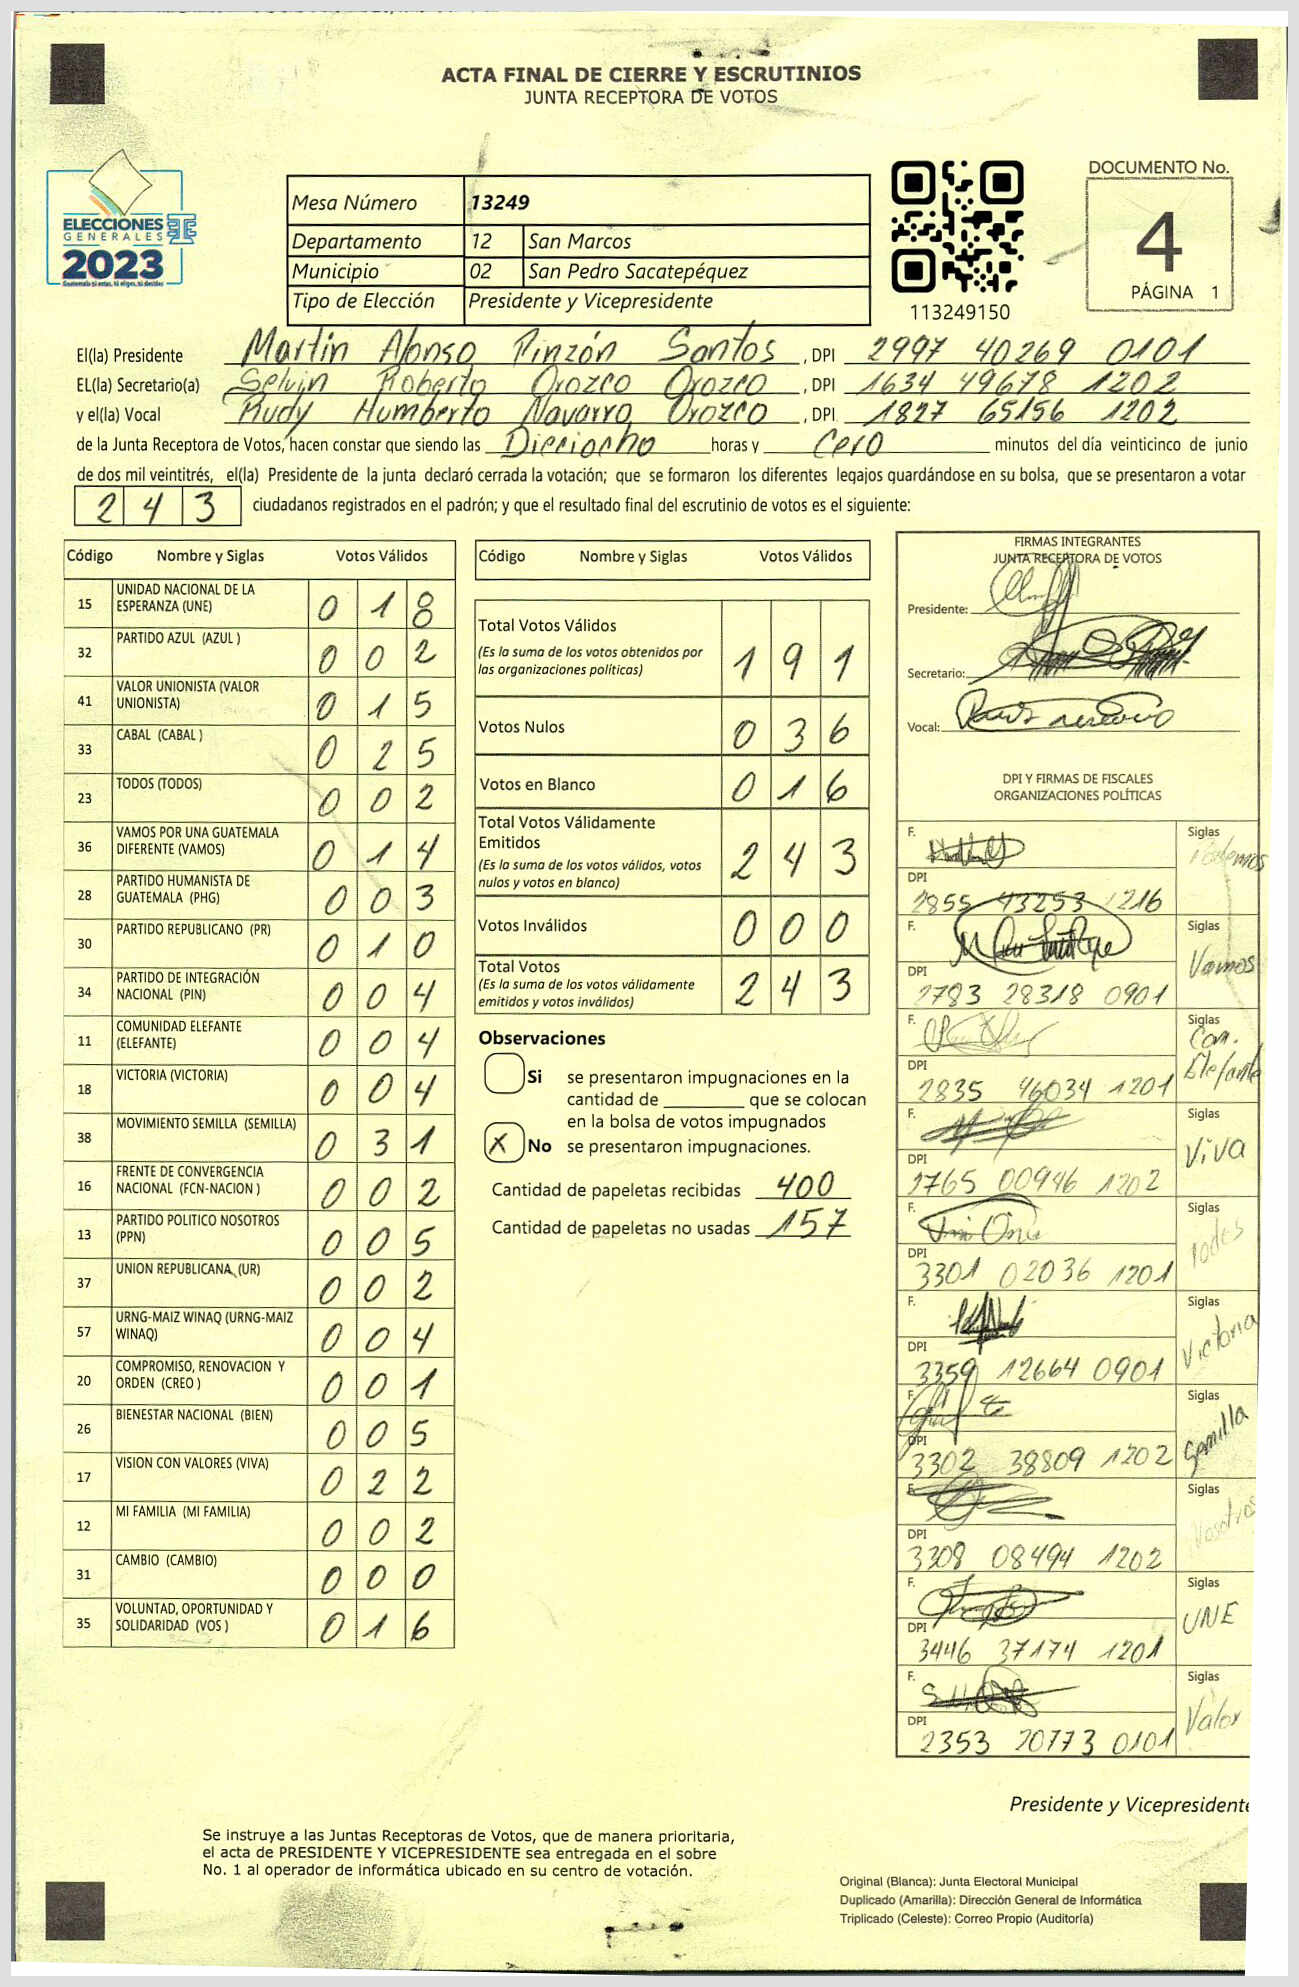 ACTA FINAL DE CIERRE Y ESCRUTINIOS
JUNTA RECEPTORA DE VOTOS
ELECCIONES
GENERALES
2023
Guatemala tú estas, tú eliges, tú decides
Mesa Número 13249
Departamento 12 San Marcos
Municipio 02 San Pedro Sacatepéquez
Tipo de Elección Presidente y Vicepresidente
113249150
DOCUMENTO No.
4
PÁGINA 1
El(la) Presidente Martin Alonso Pinzón Santos, DPI 2997 40269 0101
EL(la) Secretario(a) Selvin Roberto Orozco Orozco, DPI 1634 49678 1202
y el(la) Vocal Rudy Humberto Navarro Orozco, DPI 1827 65156 1202
de la Junta Receptora de Votos, hacen constar que siendo las Dieciocho horas y cero minutos del día veinticinco de junio
de dos mil veintitrés, el(la) Presidente de la junta declaró cerrada la votación; que se formaron los diferentes legajos guardándose en su bolsa, que se presentaron a votar
243 ciudadanos registrados en el padrón; y que el resultado final del escrutinio de votos es el siguiente:
Código Nombre y Siglas Votos Válidos
15 UNIDAD NACIONAL DE LA ESPERANZA (UNE) 018
32 PARTIDO AZUL (AZUL ) 002
41 VALOR UNIONISTA (VALOR UNIONISTA) 015
33 CABAL (CABAL ) 025
23 TODOS (TODOS) 002
36 VAMOS POR UNA GUATEMALA DIFERENTE (VAMOS) 014
28 PARTIDO HUMANISTA DE GUATEMALA (PHG) 003
30 PARTIDO REPUBLICANO (PR) 010
34 PARTIDO DE INTEGRACIÓN NACIONAL (PIN) 004
11 COMUNIDAD ELEFANTE (ELEFANTE) 004
18 VICTORIA (VICTORIA) 004
38 MOVIMIENTO SEMILLA (SEMILLA) 031
16 FRENTE DE CONVERGENCIA NACIONAL (FCN-NACION ) 002
13 PARTIDO POLITICO NOSOTROS (PPN) 005
37 UNION REPUBLICANA (UR) 002
57 URNG-MAIZ WINAQ (URNG-MAIZ WINAQ) 004
20 COMPROMISO, RENOVACION Y ORDEN (CREO ) 001
26 BIENESTAR NACIONAL (BIEN) 005
17 VISION CON VALORES (VIVA) 022
12 MI FAMILIA (MI FAMILIA) 002
31 CAMBIO (CAMBIO) 000
35 VOLUNTAD, OPORTUNIDAD Y SOLIDARIDAD (VOS ) 016
Código Nombre y Siglas Votos Válidos
Total Votos Válidos 191
(Es la suma de los votos obtenidos por
las organizaciones políticas)
Votos Nulos 036
Votos en Blanco 016
Total Votos Válidamente
Emitidos 243
(Es la suma de los votos válidos, votos
nulos y votos en blanco)
Votos Inválidos 000
Total Votos 243
(Es la suma de los votos válidamente
emitidos y votos inválidos)
Observaciones
Si se presentaron impugnaciones en la
cantidad de ________ que se colocan
en la bolsa de votos impugnados
X No se presentaron impugnaciones.
Cantidad de papeletas recibidas 400
Cantidad de papeletas no usadas 157
FIRMAS INTEGRANTES
JUNTA RECEPTORA DE VOTOS
Presidente:
Secretario:
Vocal:
DPI Y FIRMAS DE FISCALES
ORGANIZACIONES POLÍTICAS
F. Siglas Podemos
DPI 2855 43253 1216
F. Siglas Vamos
DPI 2783 28318 0901
F. Siglas Com. Elefante
DPI 2835 46034 1201
F. Siglas Viva
DPI 2765 00946 1202
F. Siglas Todos
DPI 3301 02036 1201
F. Siglas Victoria
DPI 3359 12664 0901
F. Siglas Semilla
DPI 3302 38809 1202
F. Siglas Nosotros
DPI 3308 08494 1202
F. Siglas UNE
DPI 3446 37174 1201
F. Siglas Valor
DPI 2353 20773 0101
Presidente y Vicepresidente
Se instruye a las Juntas Receptoras de Votos, que de manera prioritaria,
el acta de PRESIDENTE Y VICEPRESIDENTE sea entregada en el sobre
No. 1 al operador de informática ubicado en su centro de votación.
Original (Blanca): Junta Electoral Municipal
Duplicado (Amarilla): Dirección General de Informática
Triplicado (Celeste): Correo Propio (Auditoría)